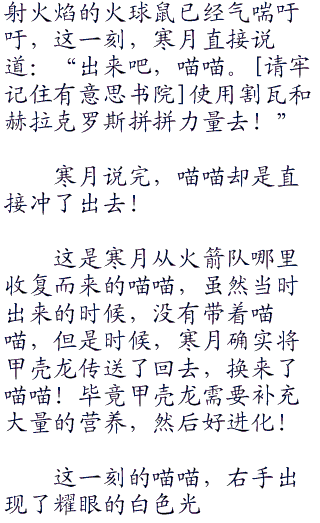 射火焰的火球鼠已经气喘吁
吁，这一刻，寒月直接说
道：“出来吧，喵喵。[请牢
记住有意思书院]使用割瓦和
赫拉克罗斯拼拼力量去！”
寒月说完，喵喵却是直
接冲了出去！
这是寒月从火箭队哪里
收复而来的喵喵，虽然当时
出来的时候，没有带着喵
喵，但是时候，寒月确实将
甲壳龙传送了回去，换来了
喵喵！毕竟甲壳龙需要补充
大量的营养，然后好进化！
这一刻的喵喵，右手出
现了耀眼的白色光